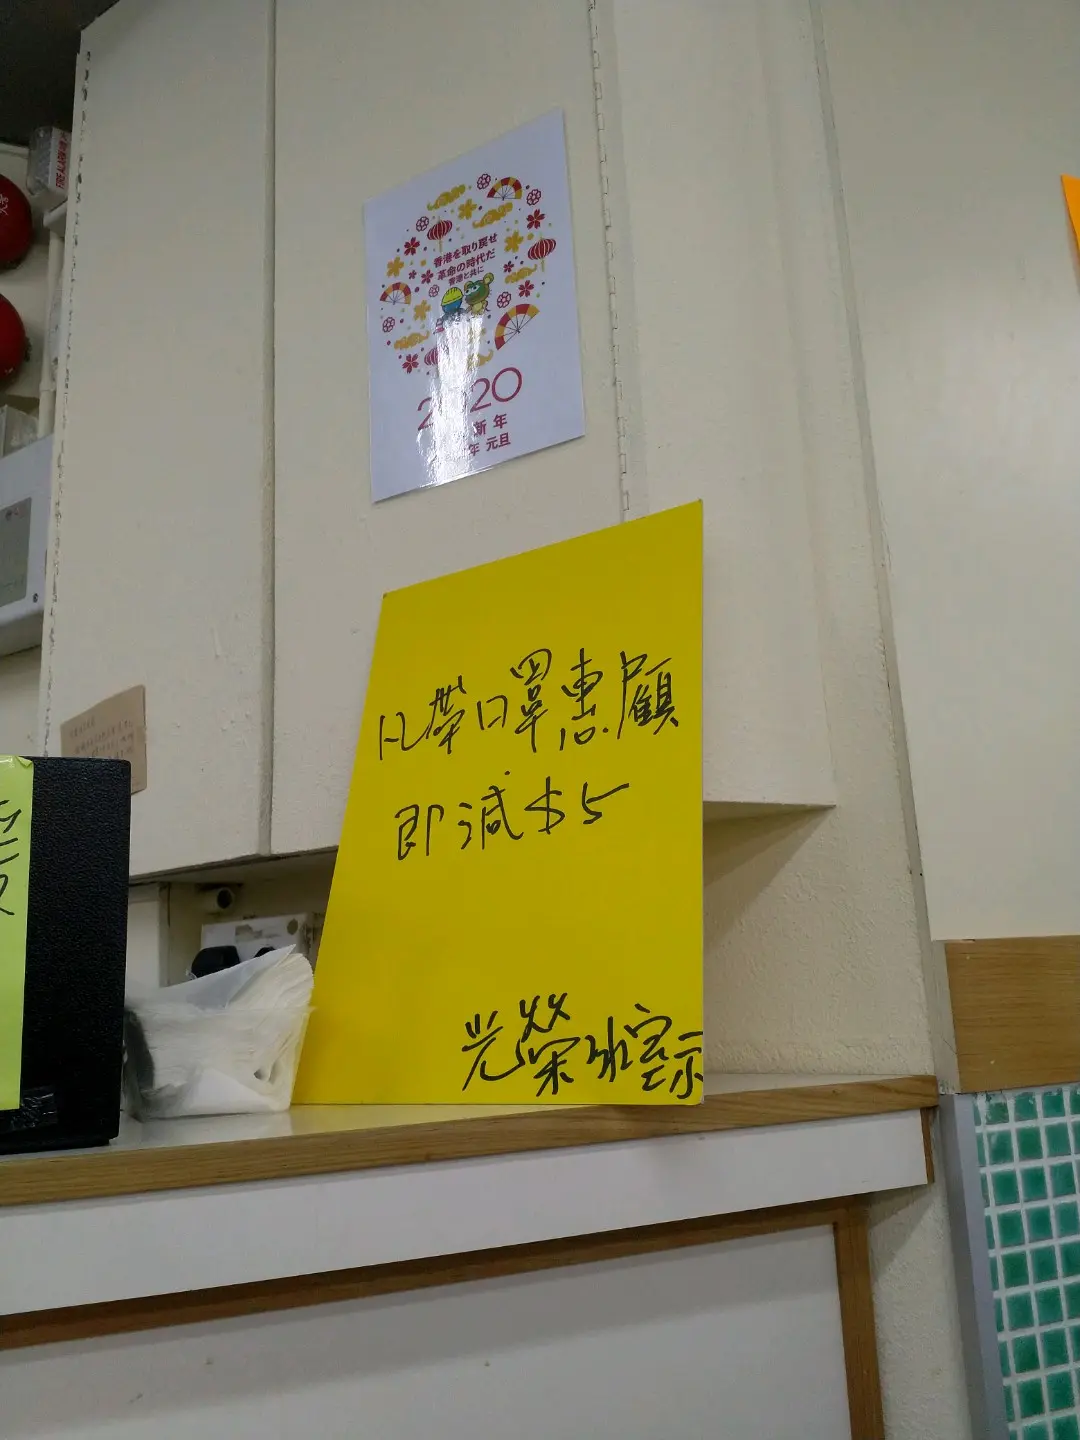 FIRE ALARM
香港を取り戻せ
革命の時代だ
香港と共に
2020
新年
年 元旦
凡帶口罩惠顧
即減$5
光榮冰室示